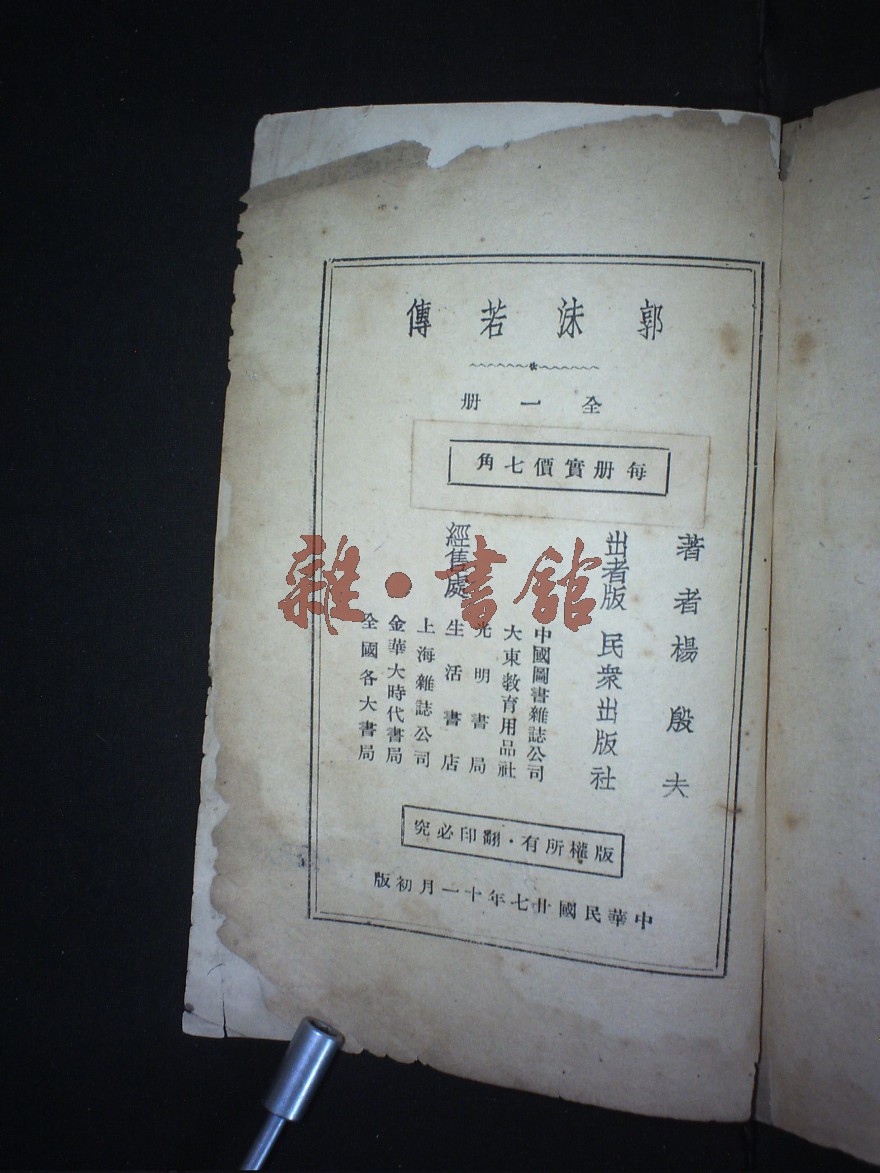 郭沫若傳
全一册
每册實價七角
著者楊殷夫
出者版 民衆出版社
經售處
中國圖書雜誌公司
大東教育用品社
光明書局
生活書店
上海雜誌公司
金華大時代書局
全國各大書局
版權所有·翻印必究
中華民國廿七年十一月初版
雜·書館